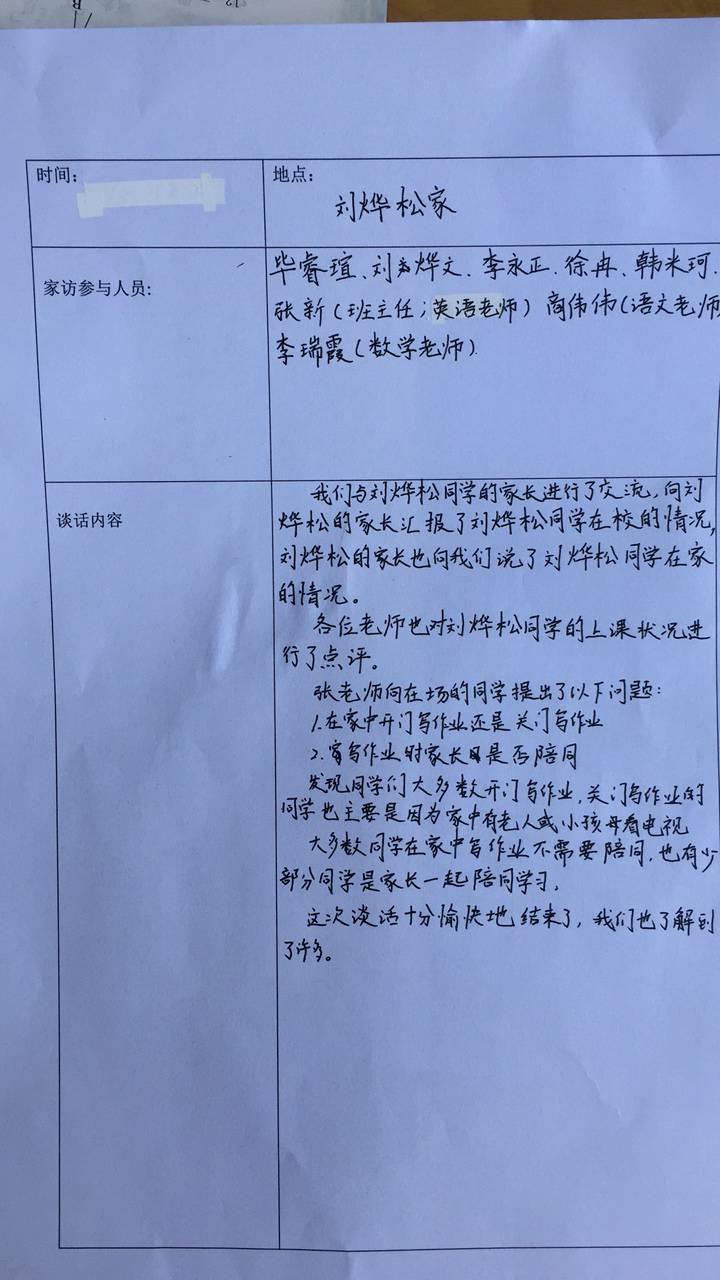 时间:
地点:
刘烨松家
家访参与人员:
毕睿瑄、刘烨文、李永正、徐冉、韩米珂、
张新(班主任;英语老师)商伟伟(语文老师
李瑞霞(数学老师).
谈话内容
我们与刘烨松同学的家长进行了交流,向刘
烨松的家长汇报了刘烨松同学在校的情况,
刘烨松的家长也向我们说了刘烨松同学在家
的情况。
各位老师也对刘烨松同学的上课状况进
行了点评。
张老师向在场的同学提出了以下问题:
1.在家中开门写作业还是关门写作业
2.写作业时家长是否陪同
发现同学们大多数开门写作业,关门写作业的
同学也主要是因为家中有老人或小孩看电视
大多数同学在家中写作业不需要陪同,也有少
部分同学是家长一起陪同学习.
这次谈话十分愉快地结束了,我们也了解到
了许多。